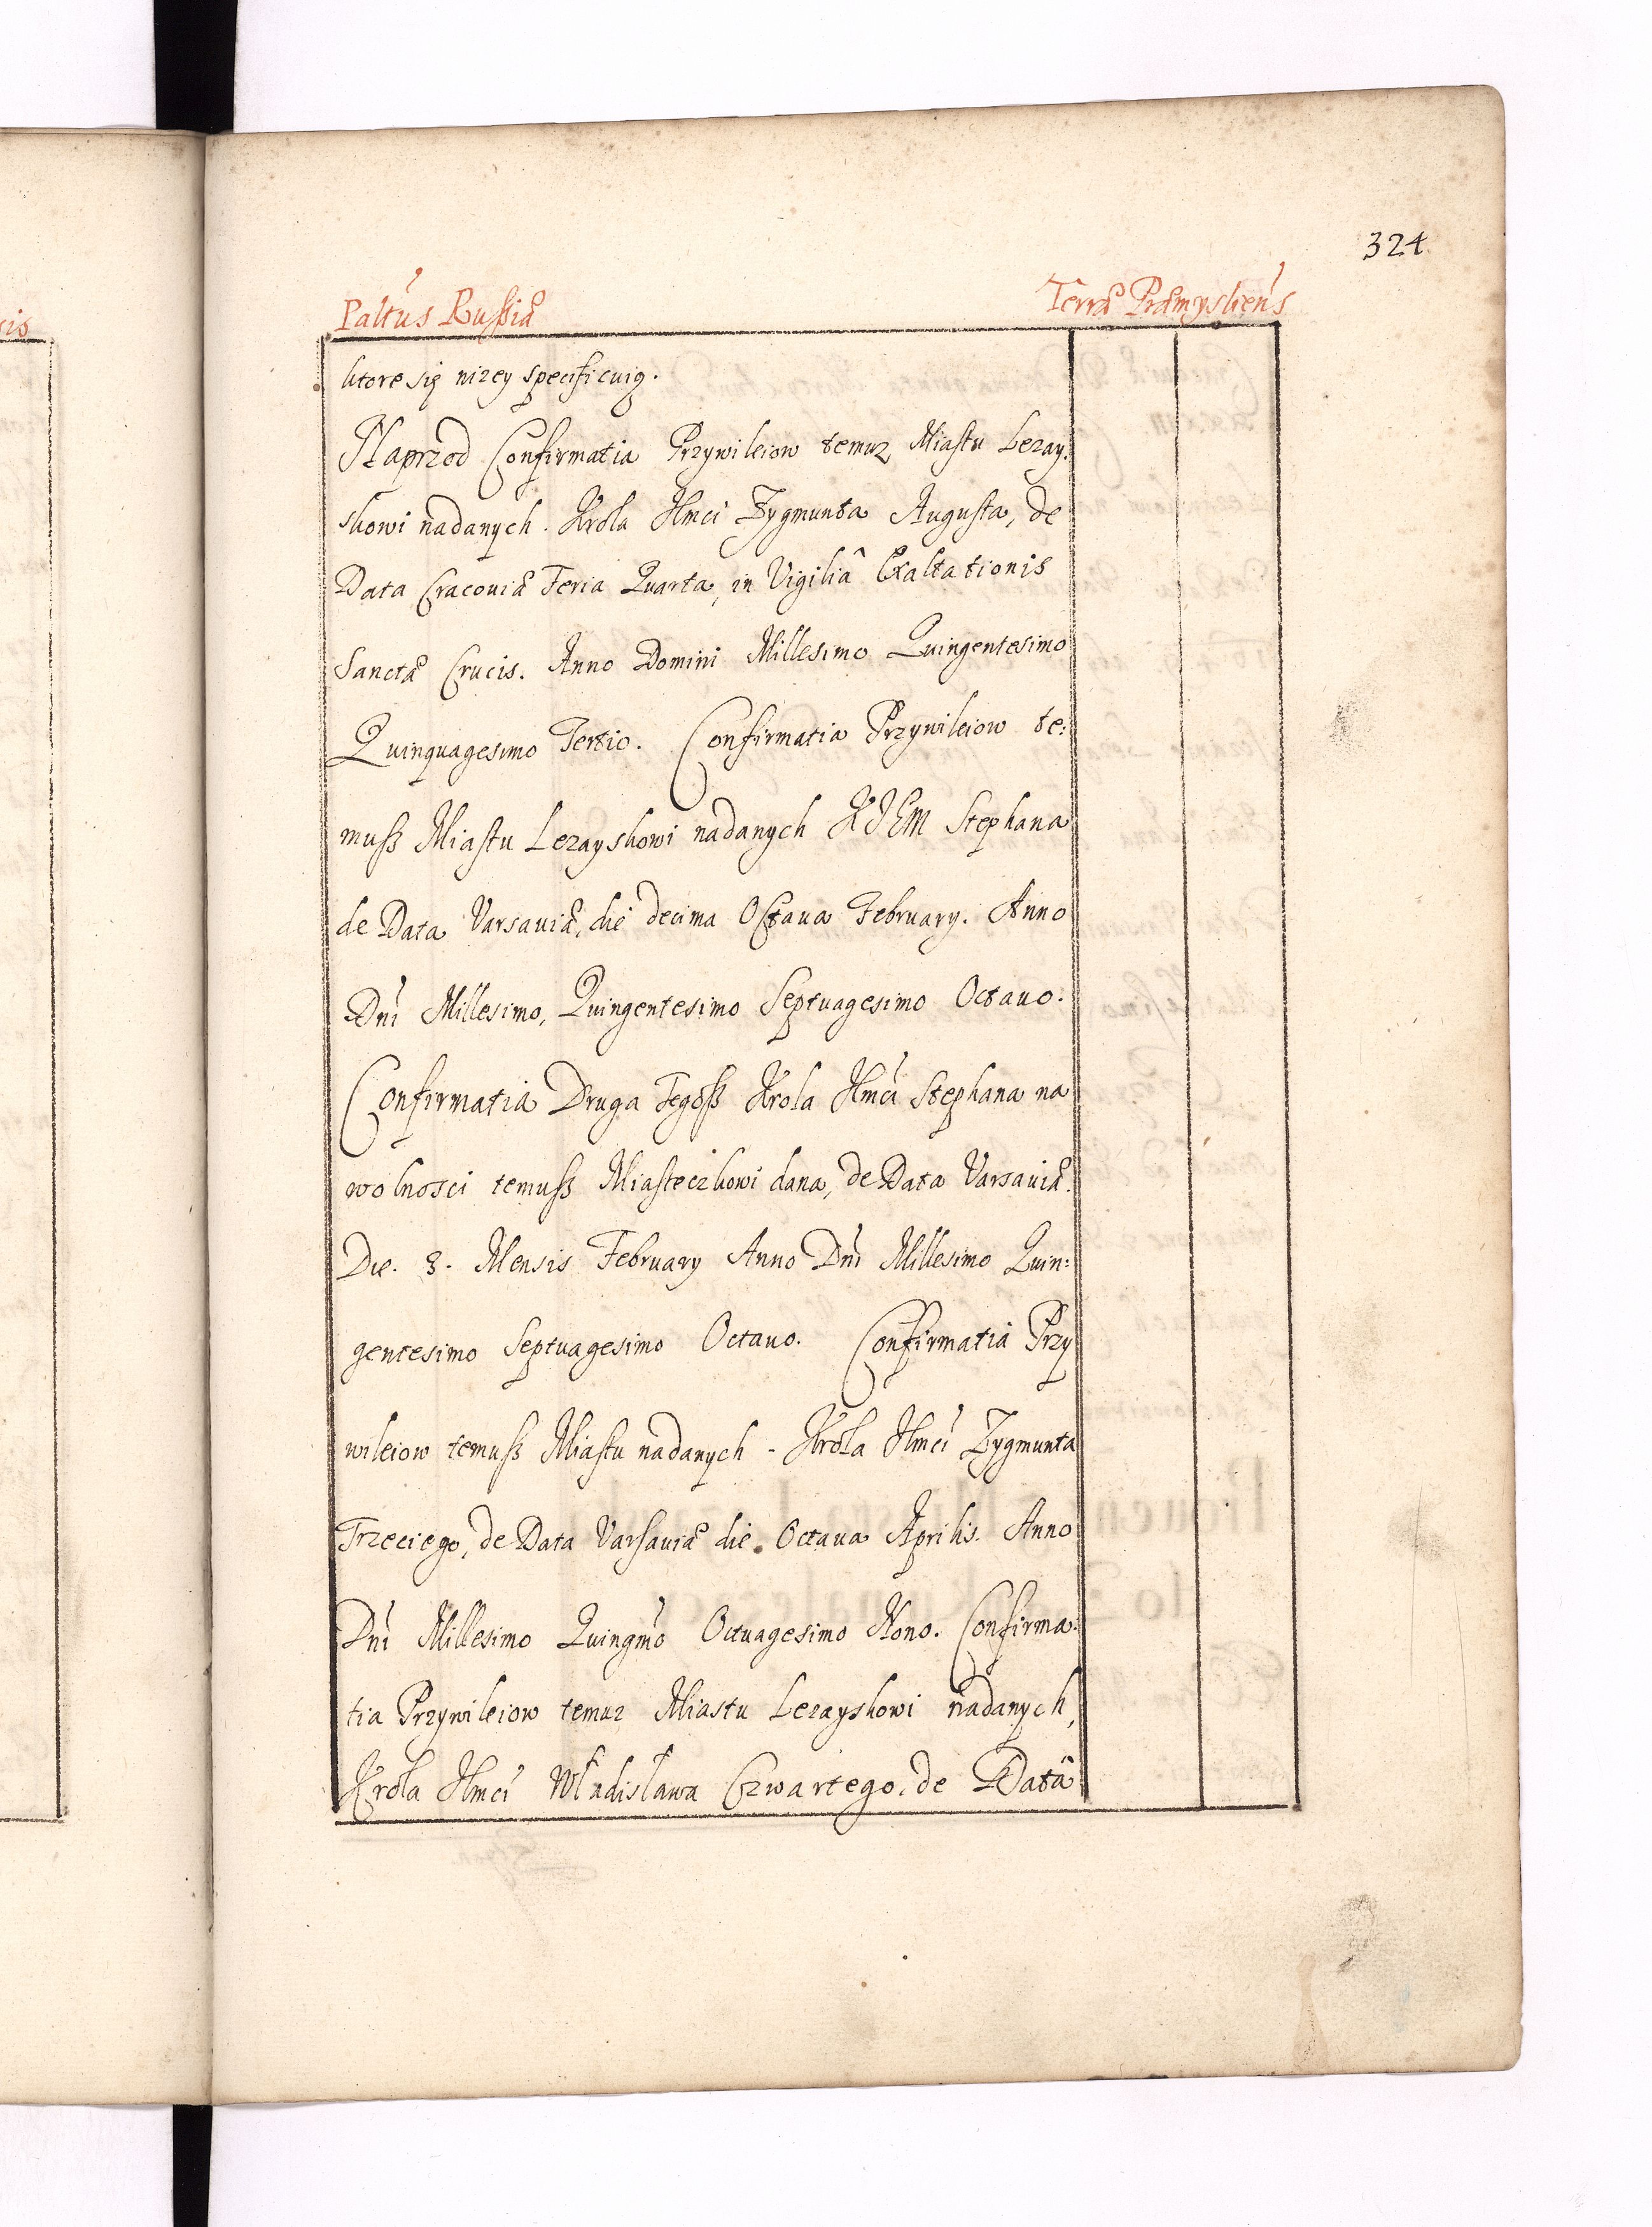 324
Paltus Russiæ Terræ Præmysliens
ktore się nizey specificuią.
Naprzod Confirmatia Przywileiow temuz Miastu Lezay:
skowi nadanych. Krola Jmci Zygmunta Augusta, de
Data Cracouiæ Feria Quarta, in Vigiliâ Exaltationis
Sanctæ Crucis. Anno Domini Millesimo Quingentesimo
Quinquagesimo Tertio. Confirmatia Przywileiow te:
muß Miastu Lezayskowi nadanych KJEM Stephana
de Data Varsauiæ, die decima Octaua February. Anno
Dni Millesimo, Quingentesimo Septuagesimo Octauo.
Confirmatia Druga Tegoß Krola Jmci Stephana na
wolnosci temuß Miasteczkowi dana, de Data Varsauiæ.
Die. 8. Mensis February Anno Dni Millesimo Quin:
gentesimo Septuagesimo Octauo. Confirmatia Przy
wileiow temuß Miastu nadanych - Krola Jmci Zygmunta
Trzeciego, de Data Varsauiæ die. Octaua Aprilis. Anno
Dni Millesimo Quingmo Octuagesimo Nono. Confirma:
tia Przywileiow temuz Miastu Lezayskowi nadanych,
Krola Jmci Władisława Czwartego, de Datâ